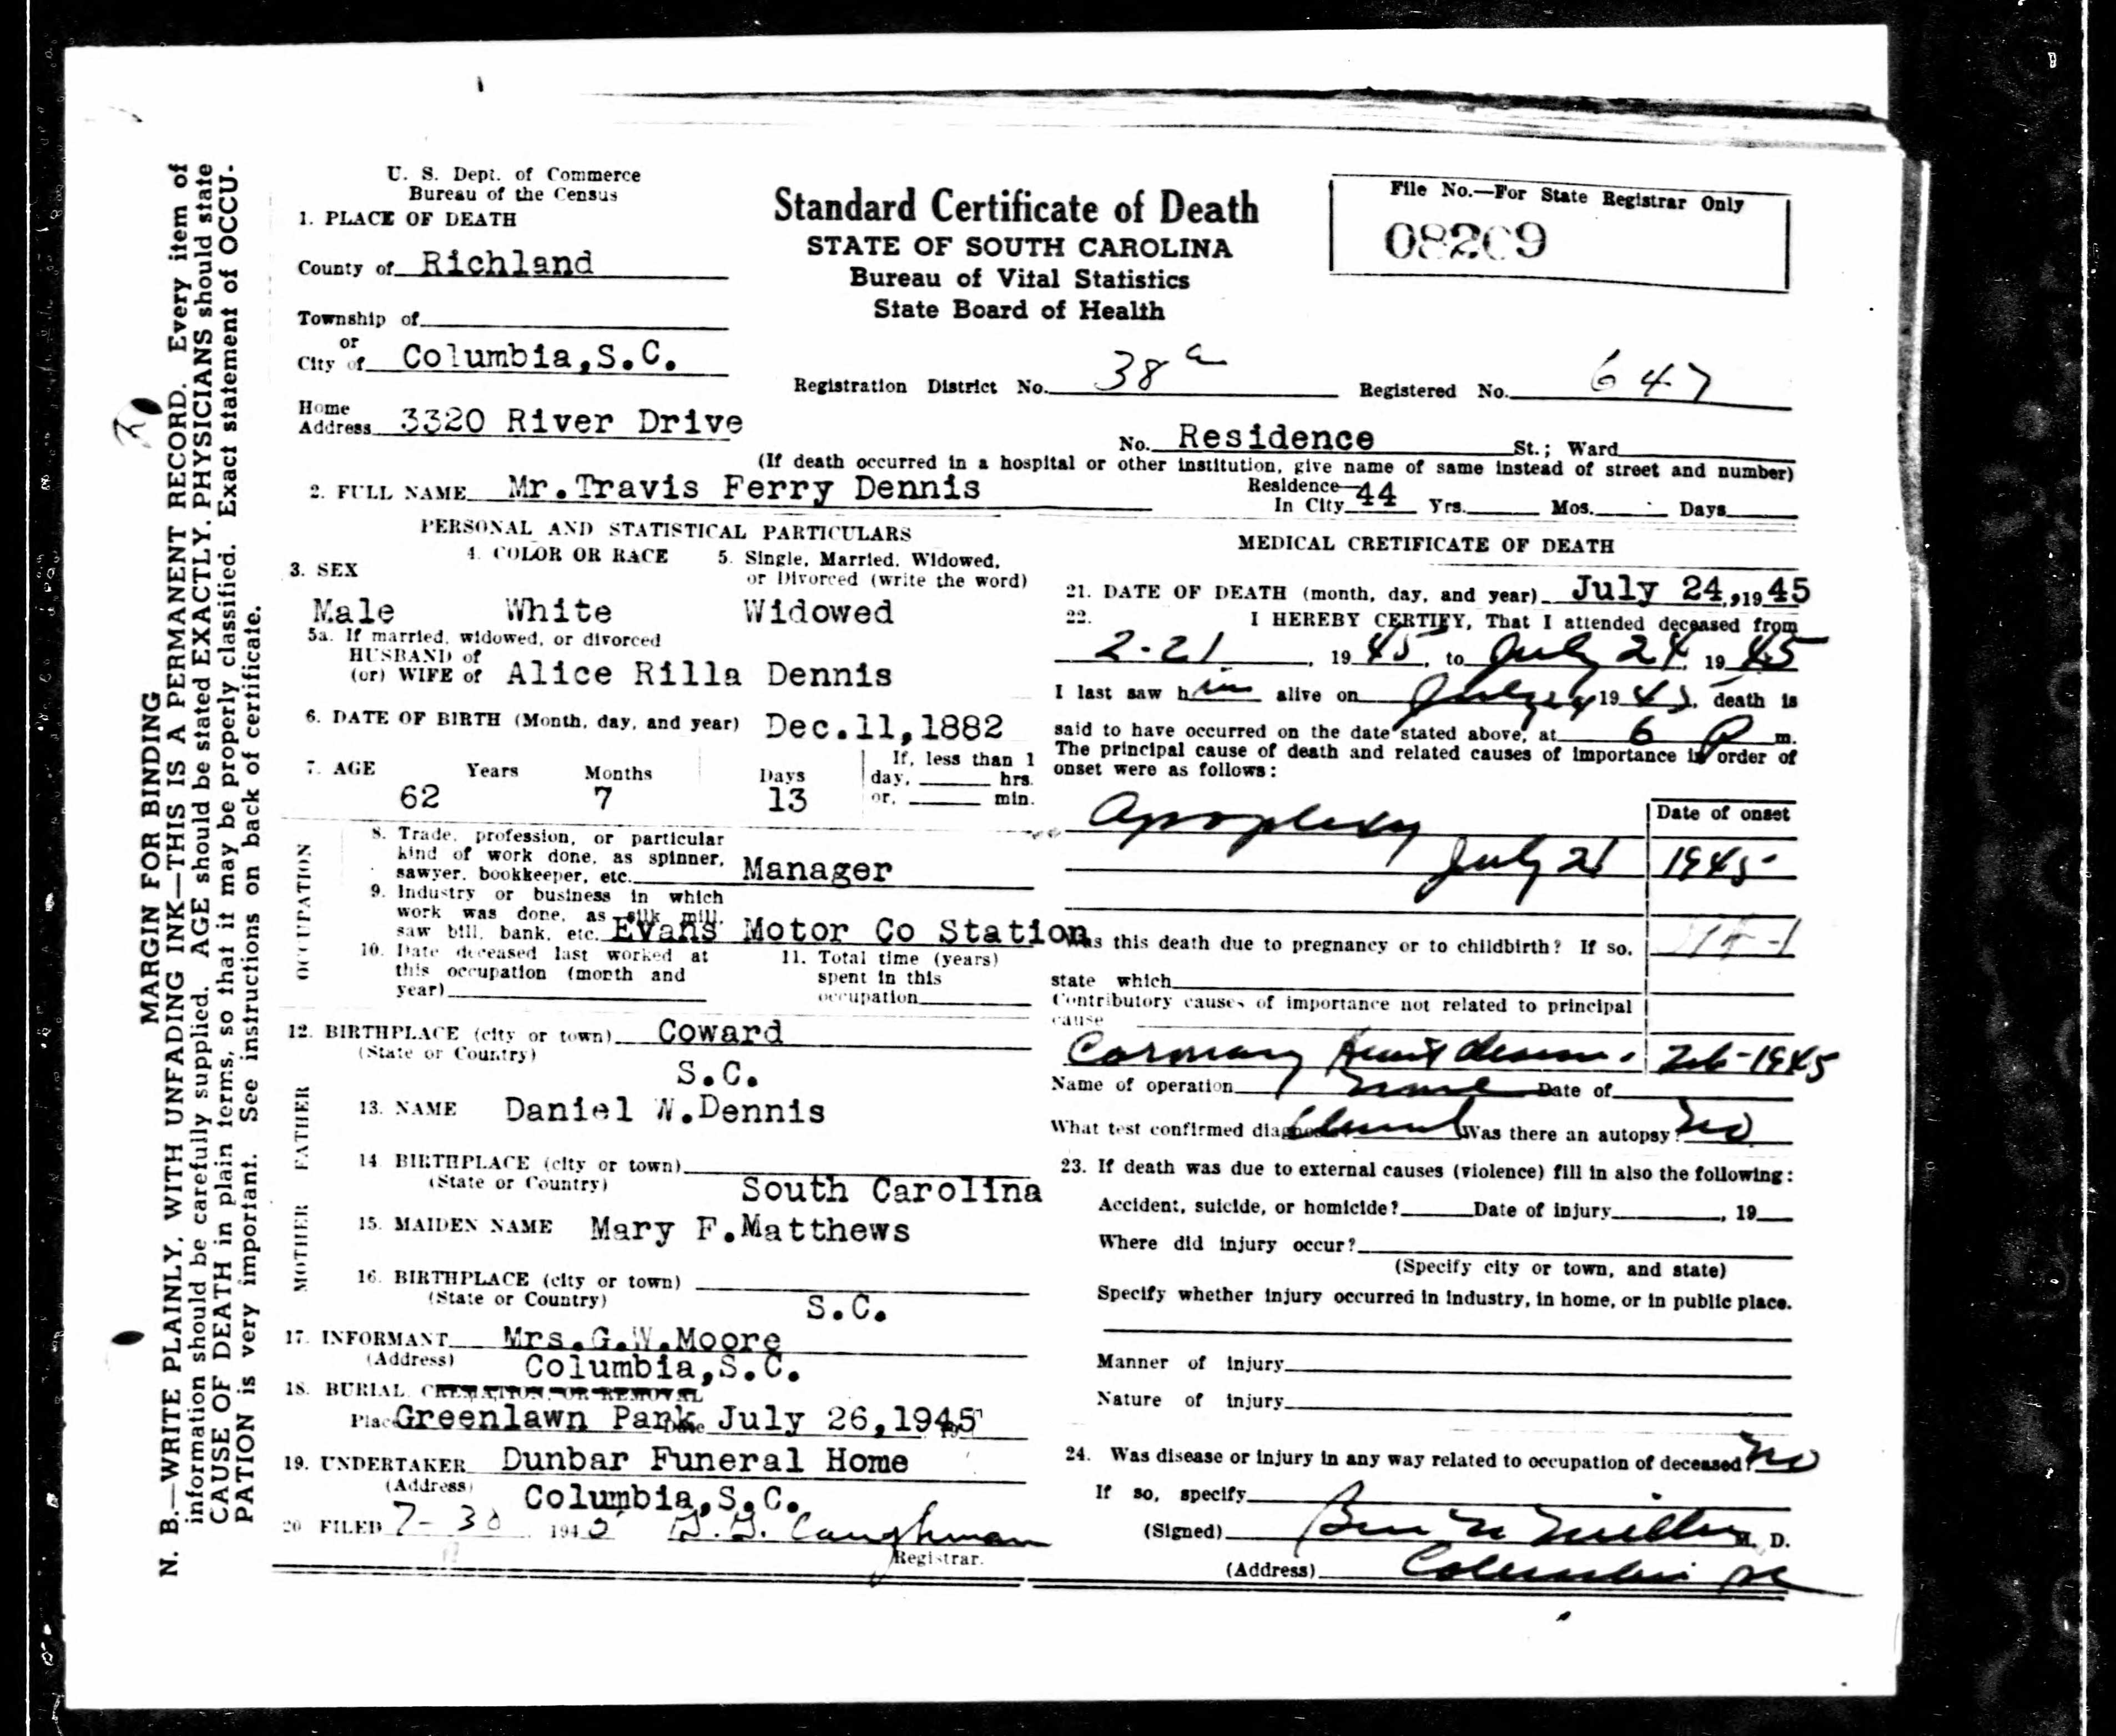 N. B.—WRITE PLAINLY, WITH UNFADING INK—THIS IS A PERMANENT RECORD. Every item of
information should be carefully supplied. AGE should be stated EXACTLY. PHYSICIANS should state
CAUSE OF DEATH in plain terms, so that it may be properly classified. Exact statement of OCCU-
PATION is very important. See instructions on back of certificate.
MARGIN FOR BINDING
U. S. Dept. of Commerce
Bureau of the Census
Standard Certificate of Death
STATE OF SOUTH CAROLINA
Bureau of Vital Statistics
State Board of Health
File No.—For State Registrar Only
08209
1. PLACE OF DEATH
County of Richland
Township of
or
City of Columbia,S.C.
Registration District No. 38 a
Registered No. 647
Home
Address 3320 River Drive
No. Residence St.; Ward
(If death occurred in a hospital or other institution, give name of same instead of street and number)
2. FULL NAME Mr.Travis Ferry Dennis
Residence
In City 44 Yrs. Mos. Days
PERSONAL AND STATISTICAL PARTICULARS
3. SEX
Male
4. COLOR OR RACE
White
5. Single, Married, Widowed,
or Divorced (write the word)
Widowed
5a. If married, widowed, or divorced
HUSBAND of
(or) WIFE of Alice Rilla Dennis
6. DATE OF BIRTH (Month, day, and year) Dec.11,1882
7. AGE Years Months Days
62 7 13
If, less than 1
day, hrs.
or, min.
OCCUPATION
8. Trade, profession, or particular
kind of work done, as spinner,
sawyer, bookkeeper, etc. Manager
9. Industry or business in which
work was done, as silk mill,
saw bill, bank, etc. Evans Motor Co Station
10. Date deceased last worked at
this occupation (month and
year)
11. Total time (years)
spent in this
occupation
12. BIRTHPLACE (city or town) Coward
(State or Country)
S.C.
FATHER
13. NAME Daniel W.Dennis
14. BIRTHPLACE (city or town)
(State or Country) South Carolina
MOTHER
15. MAIDEN NAME Mary F.Matthews
16. BIRTHPLACE (city or town)
(State or Country) S.C.
17. INFORMANT Mrs.G.W.Moore
(Address) Columbia,S.C.
18. BURIAL CREMATION OR REMOVAL
Place Greenlawn Park Date July 26,1945
19. UNDERTAKER Dunbar Funeral Home
(Address) Columbia,S.C.
20 FILED 7-30 1945
Caughman
Registrar.
MEDICAL CRETIFICATE OF DEATH
21. DATE OF DEATH (month, day, and year) July 24,,1945
22. I HEREBY CERTIFY, That I attended deceased from
2-21, 1945, to July 24, 1945
I last saw him alive on July 24 1945, death is
said to have occurred on the date stated above, at 6 P m.
The principal cause of death and related causes of importance in order of
onset were as follows:
Date of onset
Apoplexy
July 21 1945
Was this death due to pregnancy or to childbirth? If so,
state which
Contributory causes of importance not related to principal
cause
Coronary heart disease. Feb-1945
Name of operation none Date of
What test confirmed diagnosis Clinical Was there an autopsy? No
23. If death was due to external causes (violence) fill in also the following:
Accident, suicide, or homicide? Date of injury , 19
Where did injury occur?
(Specify city or town, and state)
Specify whether injury occurred in industry, in home, or in public place.
Manner of injury
Nature of injury
24. Was disease or injury in any way related to occupation of deceased? No
If so, specify
(Signed) Ben N Miller M. D.
(Address) Columbia SC